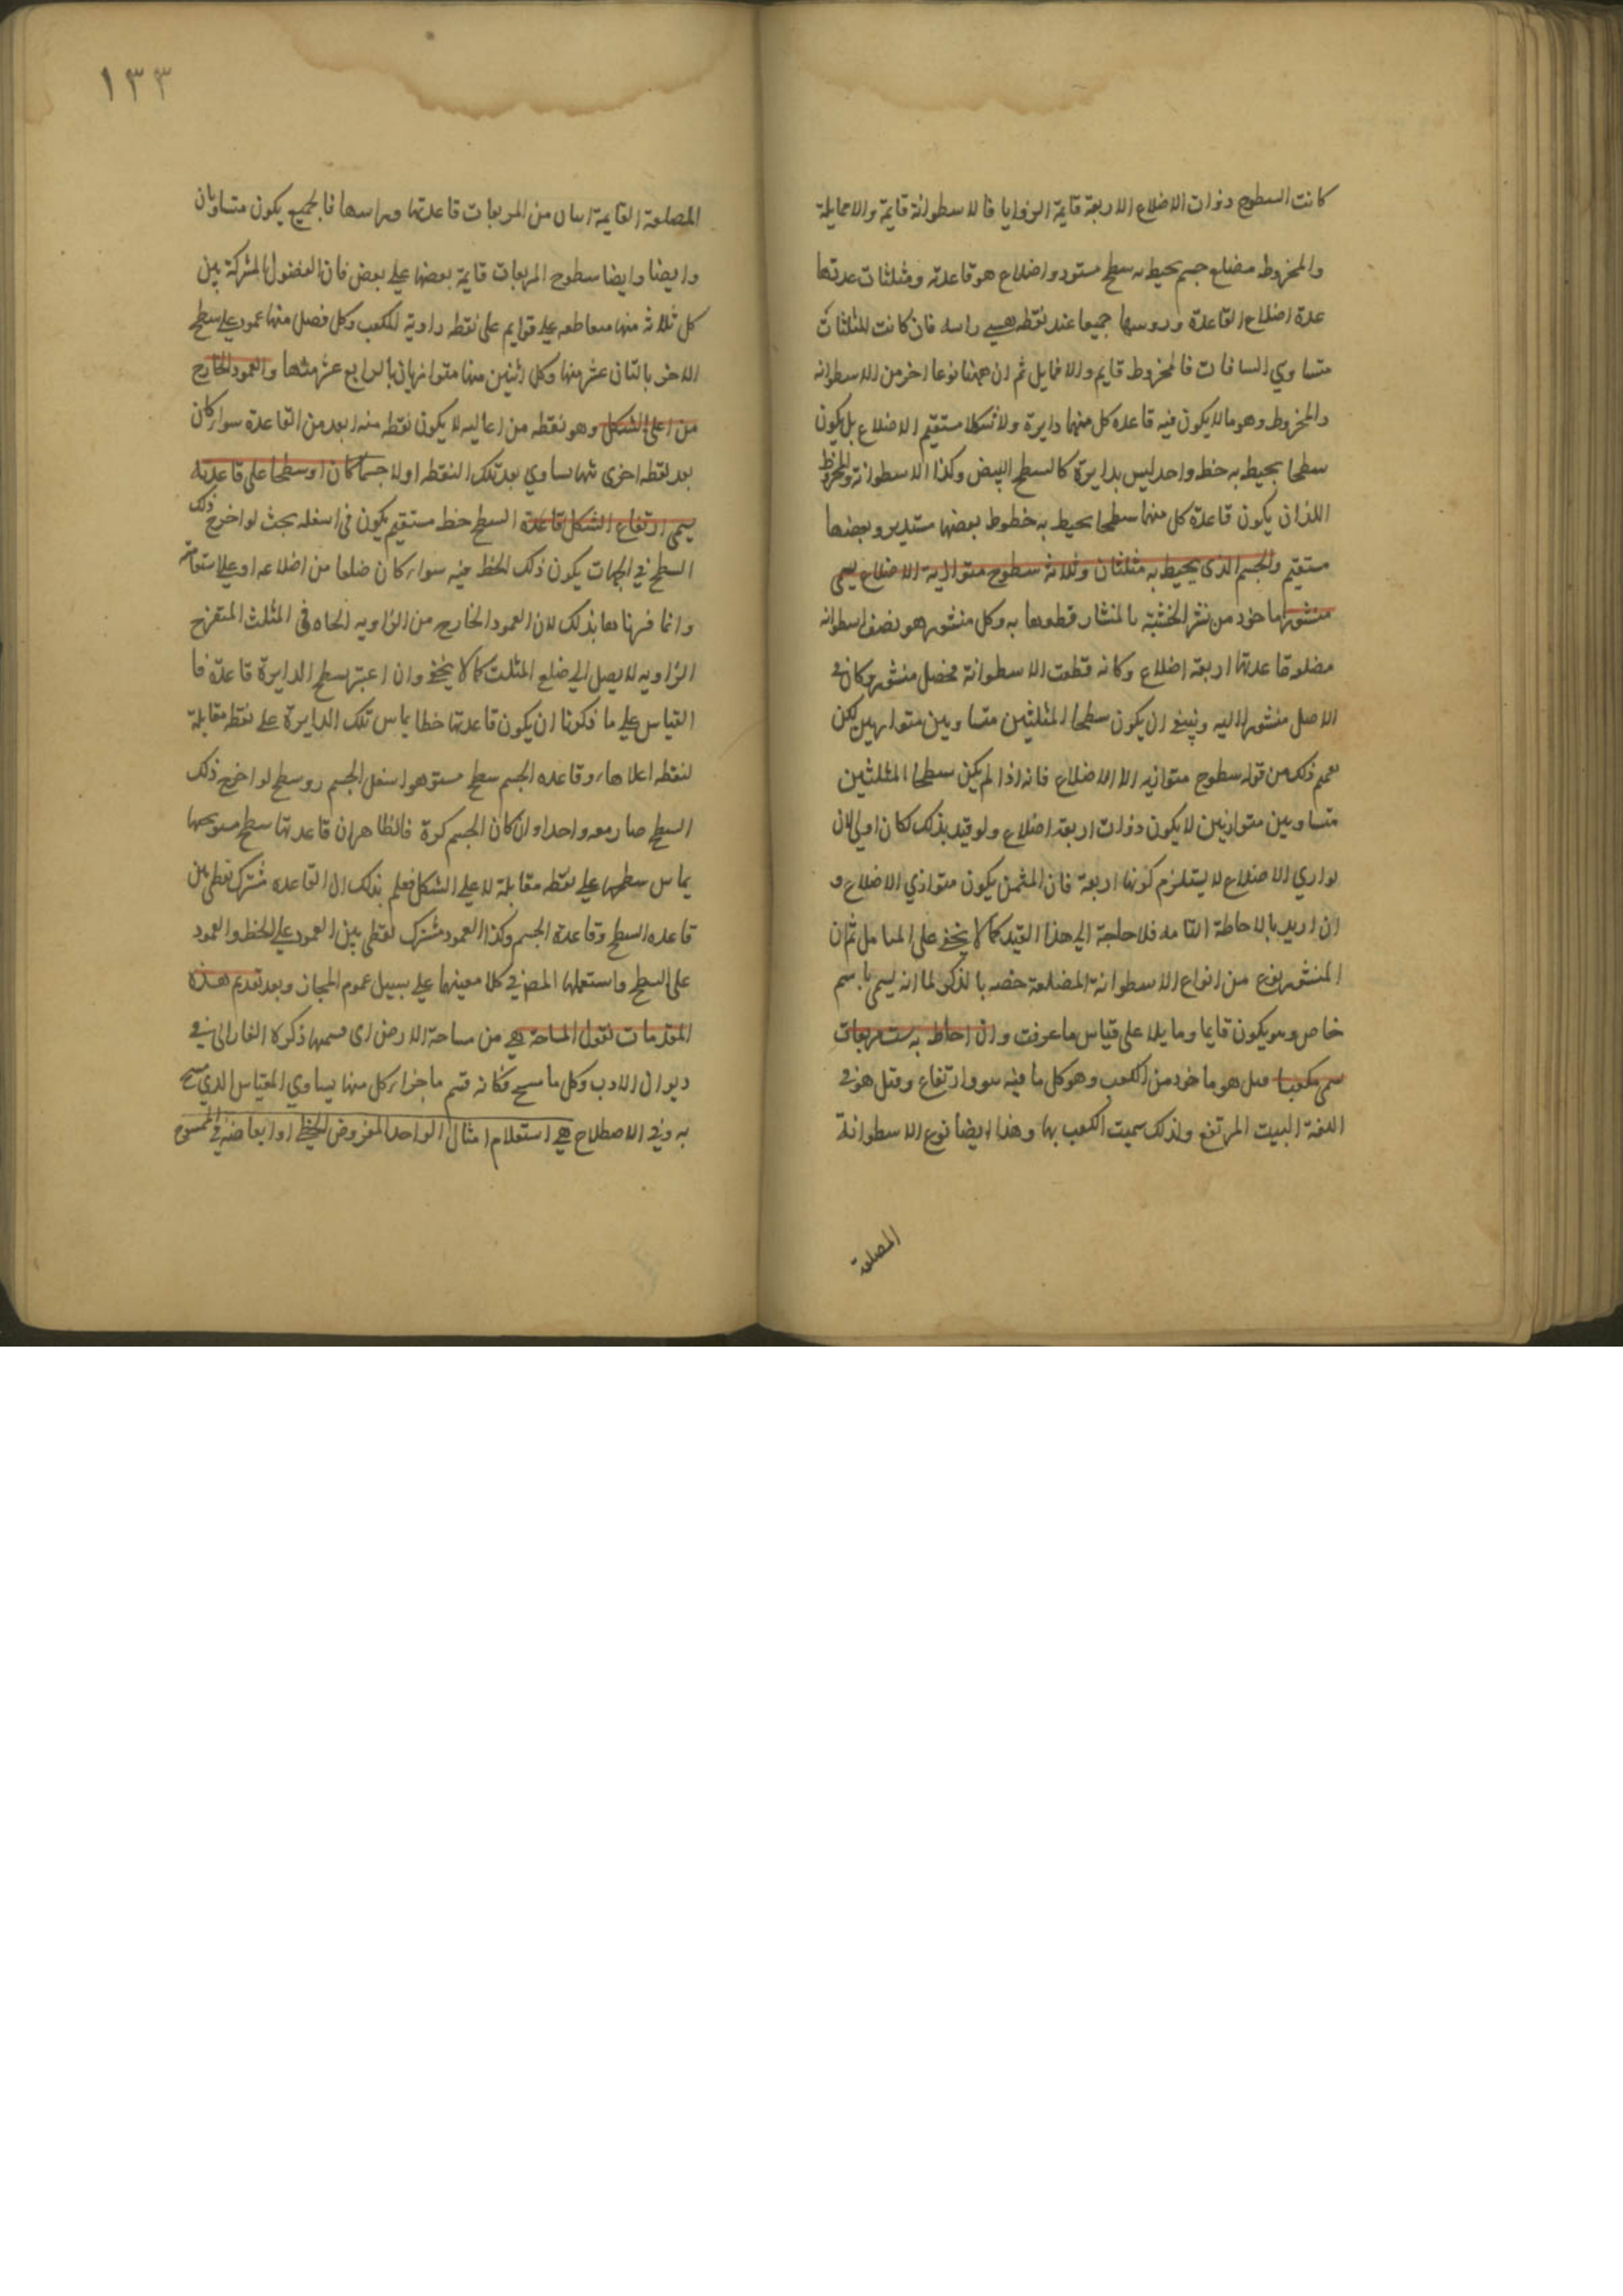 كانت السطوح ذوات الاضلاع الاربعة قايمة الزوايا فالاسطوانة قايمة والا مايلة
والمخروط مضلع جسم يحيط به سطح مستو ذو اضلاع هو قاعدته ومثلثات عدتها
عدة اضلاع القاعدة وروسها جميعا عند نقطه هي راسه فان كانت المثلثات
متساوي الساقات فالمخروط قايم والا فمايل ثم ان ههنا نوعا اخر من الاسطوانه
والمخروط وهو ما لا يكون فيه قاعده كل منهما دايرة ولا شكلا مستقيم الاضلاع بل يكون
سطحا يحيط به خط واحد ليس بدايرة كالسطح البيض وكذا الاسطوانة والمخروط
اللذان يكون قاعدة كل منهما سطحا يحيط به خطوط بعضها مستدير وبعضها
مستقيم والجسم الذى يحيط به مثلثان وثلاثة سطوح متوازية الاضلاع يسمى
منشورا ماخوذ من نشر الخشبة بالمنشار قطعها به وكل منشور هو نصف اسطوانه
مضلع قاعدتها اربعة اضلاع وكانه قطعت الاسطوانة فحصل منشور وكان في
الاصل منشورا اليه وينبغي ان يكون سطحا المثلثين متساويين متوازيين لكن
ذلك من قوله سطوح متوازيه الاضلاع فانه اذا لم يكن سطحا المثلثين
متساويين متوازيين لا يكون ذوات اربعة اضلاع ولو قيد بذلك لكان اولى لان
توازي الاضلاع لا يستلزم كونها اربعة فان المثمن يكون متوازي الاضلاع و
ان اريد بالاحاطة التامه فلا حاجة الى هذا القيد كما لا يخفى على المتامل ثم ان
المنشور نوع من انواع الاسطوانة المضلعة خصه بالذكر لما انه يسمى باسم
خاص وهو يكون قايما ومايلا على قياس ما عرفت وان احاط به ست مربعات
سمى مكعبا قيل هو ماخوذ من الكعب وهو كل ما فيه سوو ارتفاع وقيل هو في
اللغة البيت المرتفع ولذلك سميت الكعب بها وهذا ايضا نوع الاسطوانة
المضلعة
١٣٣
المضلعة القايمة من المربعات قاعدتها وراسها فالجميع يكون متساويان
وايضا وايضا سطوح المربعات قايمة بعضها على بعض فان الفضول المشتركة بين
كل ثلاثة منها متقاطعه على قوايم على نقطه زاوية المكعب وكل فصل منها عمود على سطح
الاخر بالثاني عشر منها وكل اثنين منها متوازيان بالرابع عشر منها والعمود الخارج
من اعلى الشكل وهو نقطه من اعاليه لا يكون نقطه منه ابعد من القاعدة سوا كان
بعد نقطه اخرى منها يساوي بعد تلك النقطه اولا جسما كان او سطحا على قاعدته
يسمى ارتفاع الشكل قاعدة السطح خط مستقيم يكون في اسفله بحيث لو اخرج ذلك
السطح في الجهات يكون ذلك الخط فيه سوا كان ضلعا من اضلاعه او على استقامته
وانما فسرناها بذلك لان العمود الخارج من الزاويه الحاده في المثلث المنفرج
الزاويه لا يصل الى ضلع المثلث كما لا يخفى وان اعتبر سطح الدايرة قاعدة فا
القياس على ما ذكرنا ان يكون قاعدتها خطا يماس تلك الدايرة على نقطه مقابلة
لنقطه اعلاها وقاعده الجسم سطح مستو هو اسفل الجسم وسطح لو اخرج ذلك
السطح صار معه واحدا وان كان الجسم كرة فالظاهر ان قاعدتها سطح مستو
يماس سطحها على نقطه مقابلة لاعلى الشكل فعلم بذلك ان القاعده مشترك لفظي بين
قاعده السطح وقاعدة الجسم وكذا العمود مشترك لفظي بين العمود على الخط والعمود
على السطح واستعملها المص في كلا معنيهما على سبيل عموم المجاز وبعد تقديم هذه
المقدمات نقول المساحة هي من مساحة الارض اى قسمها ذكره الفارابي في
ديوان الادب وكل ما مسح فكانه قسم باجزاء كل منها يساوي المقياس الذي مسح
به وفي الاصطلاح هي استعلام امثال الواحد المفروض الخطي او ابعاضه في الممسوح